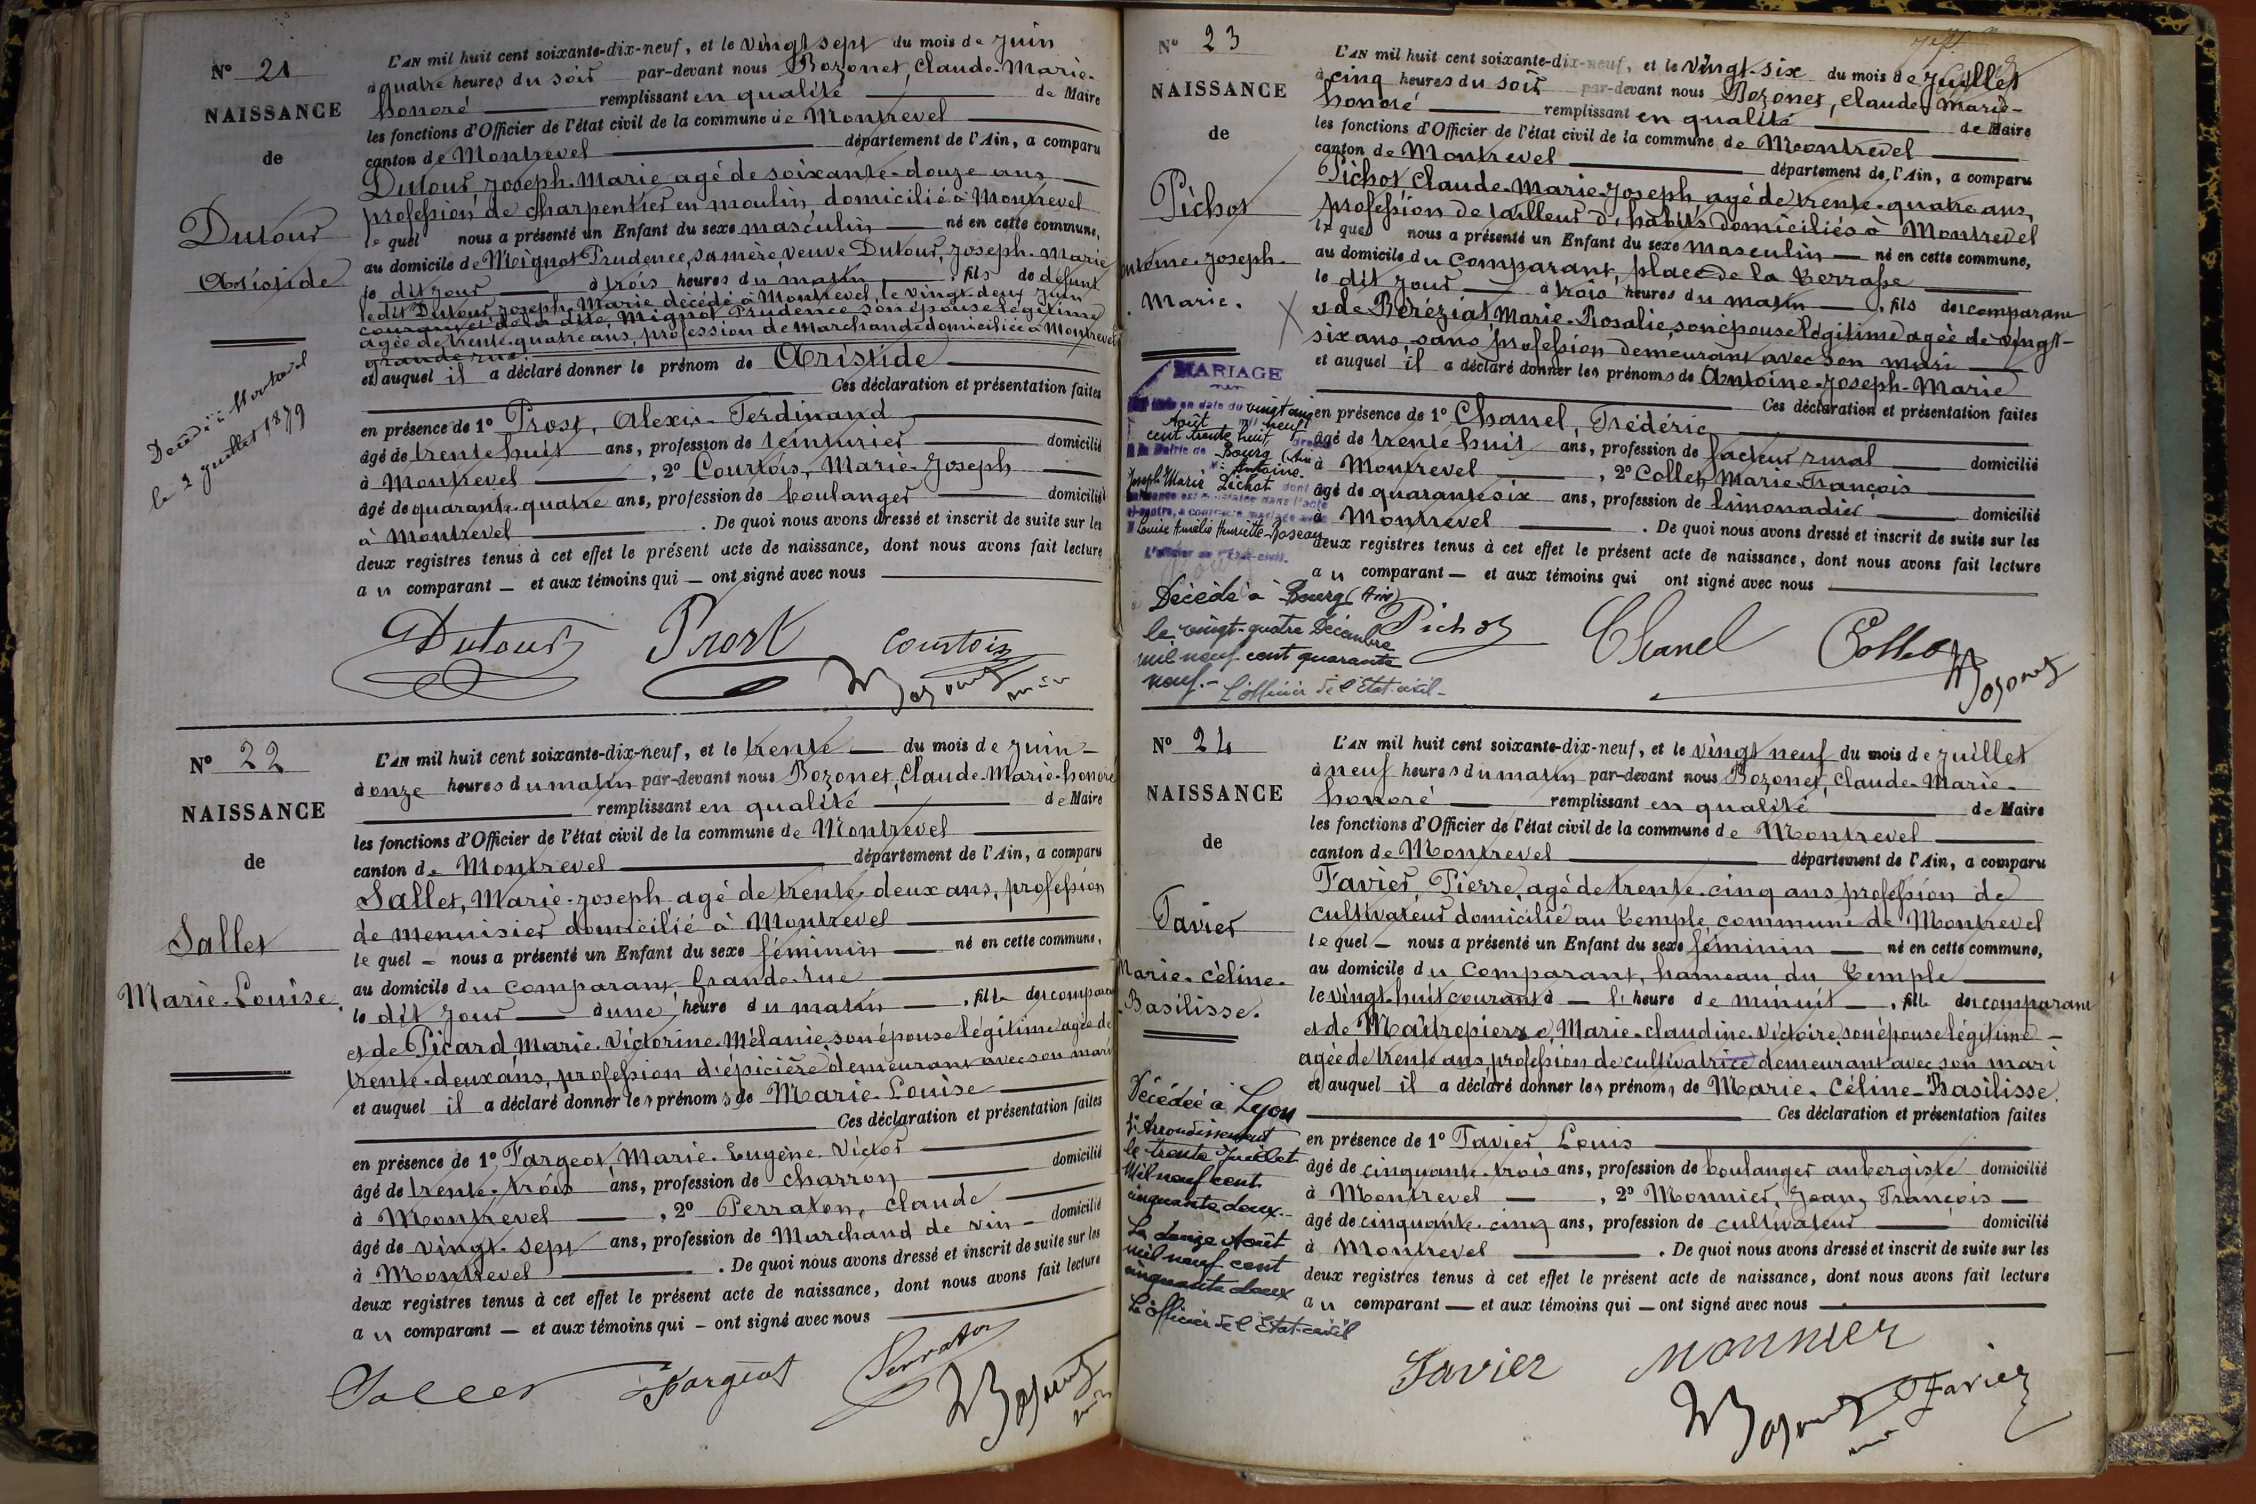 N° 21
NAISSANCE
de
Dutour
Aristide
Décédé à Montrevel
le 2 Juillet 1879
L'AN mil huit cent soixante-dix-neuf, et le vingt sept du mois de Juin
à quatre heures du soir par-devant nous Bozonet, Claude-Marie-
honoré remplissant en qualité de Maire
les fonctions d'Officier de l'état civil de la commune de Montrevel
canton de Montrevel département de l'Ain, a comparu
Dutour Joseph-Marie agé de soixante-douze ans
profession de charpentier en moulin domicilié à Montrevel
le quel nous a présenté un Enfant du sexe masculin né en cette commune,
au domicile de Mignot Prudence, sa mère, veuve Dutour, Joseph-Marie
le dit jour à trois heures du matin, fils de défunt
le dit Dutour Joseph-Marie décédé à Montrevel, le vingt-deux Juin
courant et de la dite Mignot Prudence son épouse légitime
agée de trente-quatre ans, profession de Marchande domiciliée à Montrevel
grande rue.
et auquel il a déclaré donner le prénom de Aristide
Ces déclaration et présentation faites
en présence de 1° Prost, Alexis-Ferdinand
âgé de trente huit ans, profession de teinturier domicilié
à Montrevel, 2° Courtois, Marie-Joseph
âgé de quarante-quatre ans, profession de boulanger domicilié
à Montrevel. De quoi nous avons dressé et inscrit de suite sur les
deux registres tenus à cet effet le présent acte de naissance, dont nous avons fait lecture
au comparant — et aux témoins qui — ont signé avec nous
Dutour Prost Courtois
Bozonet
N° 22
NAISSANCE
de
Sallet
Marie-Louise.
L'AN mil huit cent soixante-dix-neuf, et le trente — du mois de Juin —
à onze heures du matin par-devant nous Bozonet, Claude-Marie-honoré
remplissant en qualité de Maire
les fonctions d'Officier de l'état civil de la commune de Montrevel
canton de Montrevel département de l'Ain, a comparu
Sallet, Marie-Joseph agé de trente-deux ans, profession
de menuisier domicilié à Montrevel
le quel — nous a présenté un Enfant du sexe féminin né en cette commune,
au domicile du comparant Grande-rue
le dit jour à une heure du matin, fille des comparant
et de Picard Marie-Victorine-Mélanie, son épouse légitime agée de
trente-deux ans, profession d'épicière demeurant avec son mari
et auquel il a déclaré donner les prénoms de Marie-Louise
Ces déclaration et présentation faites
en présence de 1° Fargeot, Marie-Eugène-Victor
âgé de trente-trois ans, profession de charron domicilié
à Montrevel, 2° Perraton, Claude
âgé de vingt-sept ans, profession de Marchand de vin — domicilié
à Montrevel. De quoi nous avons dressé et inscrit de suite sur les
deux registres tenus à cet effet le présent acte de naissance, dont nous avons fait lecture
au comparant — et aux témoins qui — ont signé avec nous
Sallet Fargeot Perraton
Bozonet
N° 23
NAISSANCE
de
Pichot
Antoine-Joseph-
Marie.
MARIAGE
en date du vingt cinq
Août mil neuf
cent trente huit,
Mairie de Bourg (Ain
Antoine
Joseph Marie Pichot dont
Louise Amélie Henriette Boseau
L'officier de l'Etat-civil.
Décédé à Bourg (Ain)
le vingt-quatre Décembre
mil neuf cent quarante
neuf.-
L'officier de l'Etat-civil-
L'AN mil huit cent soixante-dix-neuf, et le vingt-six du mois de Juillet
à cinq heures du soir par-devant nous Bozonet, Claude-Marie-
honoré remplissant en qualité de Maire
les fonctions d'Officier de l'état civil de la commune de Montrevel
canton de Montrevel département de l'Ain, a comparu
Pichot, Claude-Marie-Joseph agé de trente-quatre ans,
profession de tailleur d'habits domiciliés à Montrevel
le quel nous a présenté un Enfant du sexe masculin né en cette commune,
au domicile du comparant, place de la Terrasse
le dit jour à trois heures du matin, fils des comparant
et de Béréziat Marie-Rosalie, son épouse légitime agée de vingt-
six ans, sans profession demeurant avec son mari
et auquel il a déclaré donner les prénoms de Antoine-Joseph-Marie
Ces déclaration et présentation faites
en présence de 1° Chanel, Frédéric
âgé de trente huit ans, profession de facteur rural domicilié
à Montrevel, 2° Collet, Marie-François
âgé de quarante six ans, profession de limonadier domicilié
à Montrevel. De quoi nous avons dressé et inscrit de suite sur les
deux registres tenus à cet effet le présent acte de naissance, dont nous avons fait lecture
au comparant — et aux témoins qui ont signé avec nous
Pichot Chanel Collet
Bozonet
N° 24
NAISSANCE
de
Favier
Marie-Céline-
Basilisse.
Décédée à Lyon
Arrondissement
le trente Juillet
Mil neuf cent
cinquante deux.-
Le douze Août
mil neuf cent
cinquante deux
L'officier de l'Etat-civil
L'AN mil huit cent soixante-dix-neuf, et le vingt neuf du mois de Juillet
à neuf heures du matin par-devant nous Bozonet, Claude-Marie-
honoré remplissant en qualité de Maire
les fonctions d'Officier de l'état civil de la commune de Montrevel
canton de Montrevel département de l'Ain, a comparu
Favier, Pierre, agé de trente-cinq ans profession de
cultivateur domicilié au Temple commune de Montrevel
le quel — nous a présenté un Enfant du sexe féminin né en cette commune,
au domicile du comparant, hameau du Temple
le vingt-huit courant à — l'heure de minuit —, fille des comparant
et de Maîtrepierre, Marie-Claudine-Victoire, son épouse légitime —
agée de trente ans, profession de cultivatrice demeurant avec son mari
et auquel il a déclaré donner les prénoms de Marie-Céline-Basilisse.
Ces déclaration et présentation faites
en présence de 1° Favier Louis
âgé de cinquante-trois ans, profession de boulanger aubergiste domicilié
à Montrevel —, 2° Monnier, Jean, François —
âgé de cinquante-cinq ans, profession de cultivateur domicilié
à Montrevel. De quoi nous avons dressé et inscrit de suite sur les
deux registres tenus à cet effet le présent acte de naissance, dont nous avons fait lecture
au comparant — et aux témoins qui — ont signé avec nous
Favier Monnier
Bozonet Favier